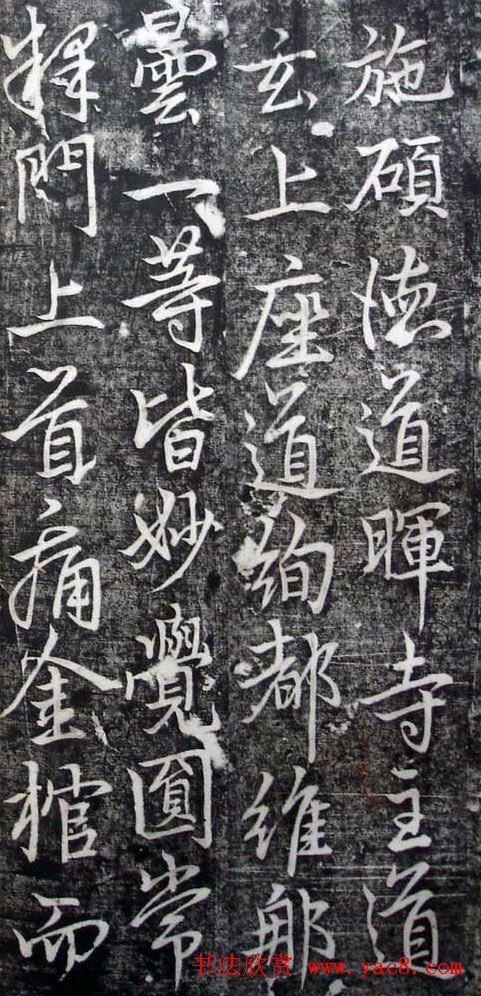 施碩德道暉寺主道
玄上座道絢都維那
曇一等皆妙覺圓常
釋門上首痛金棺而
书法欣赏 www.yac8.com